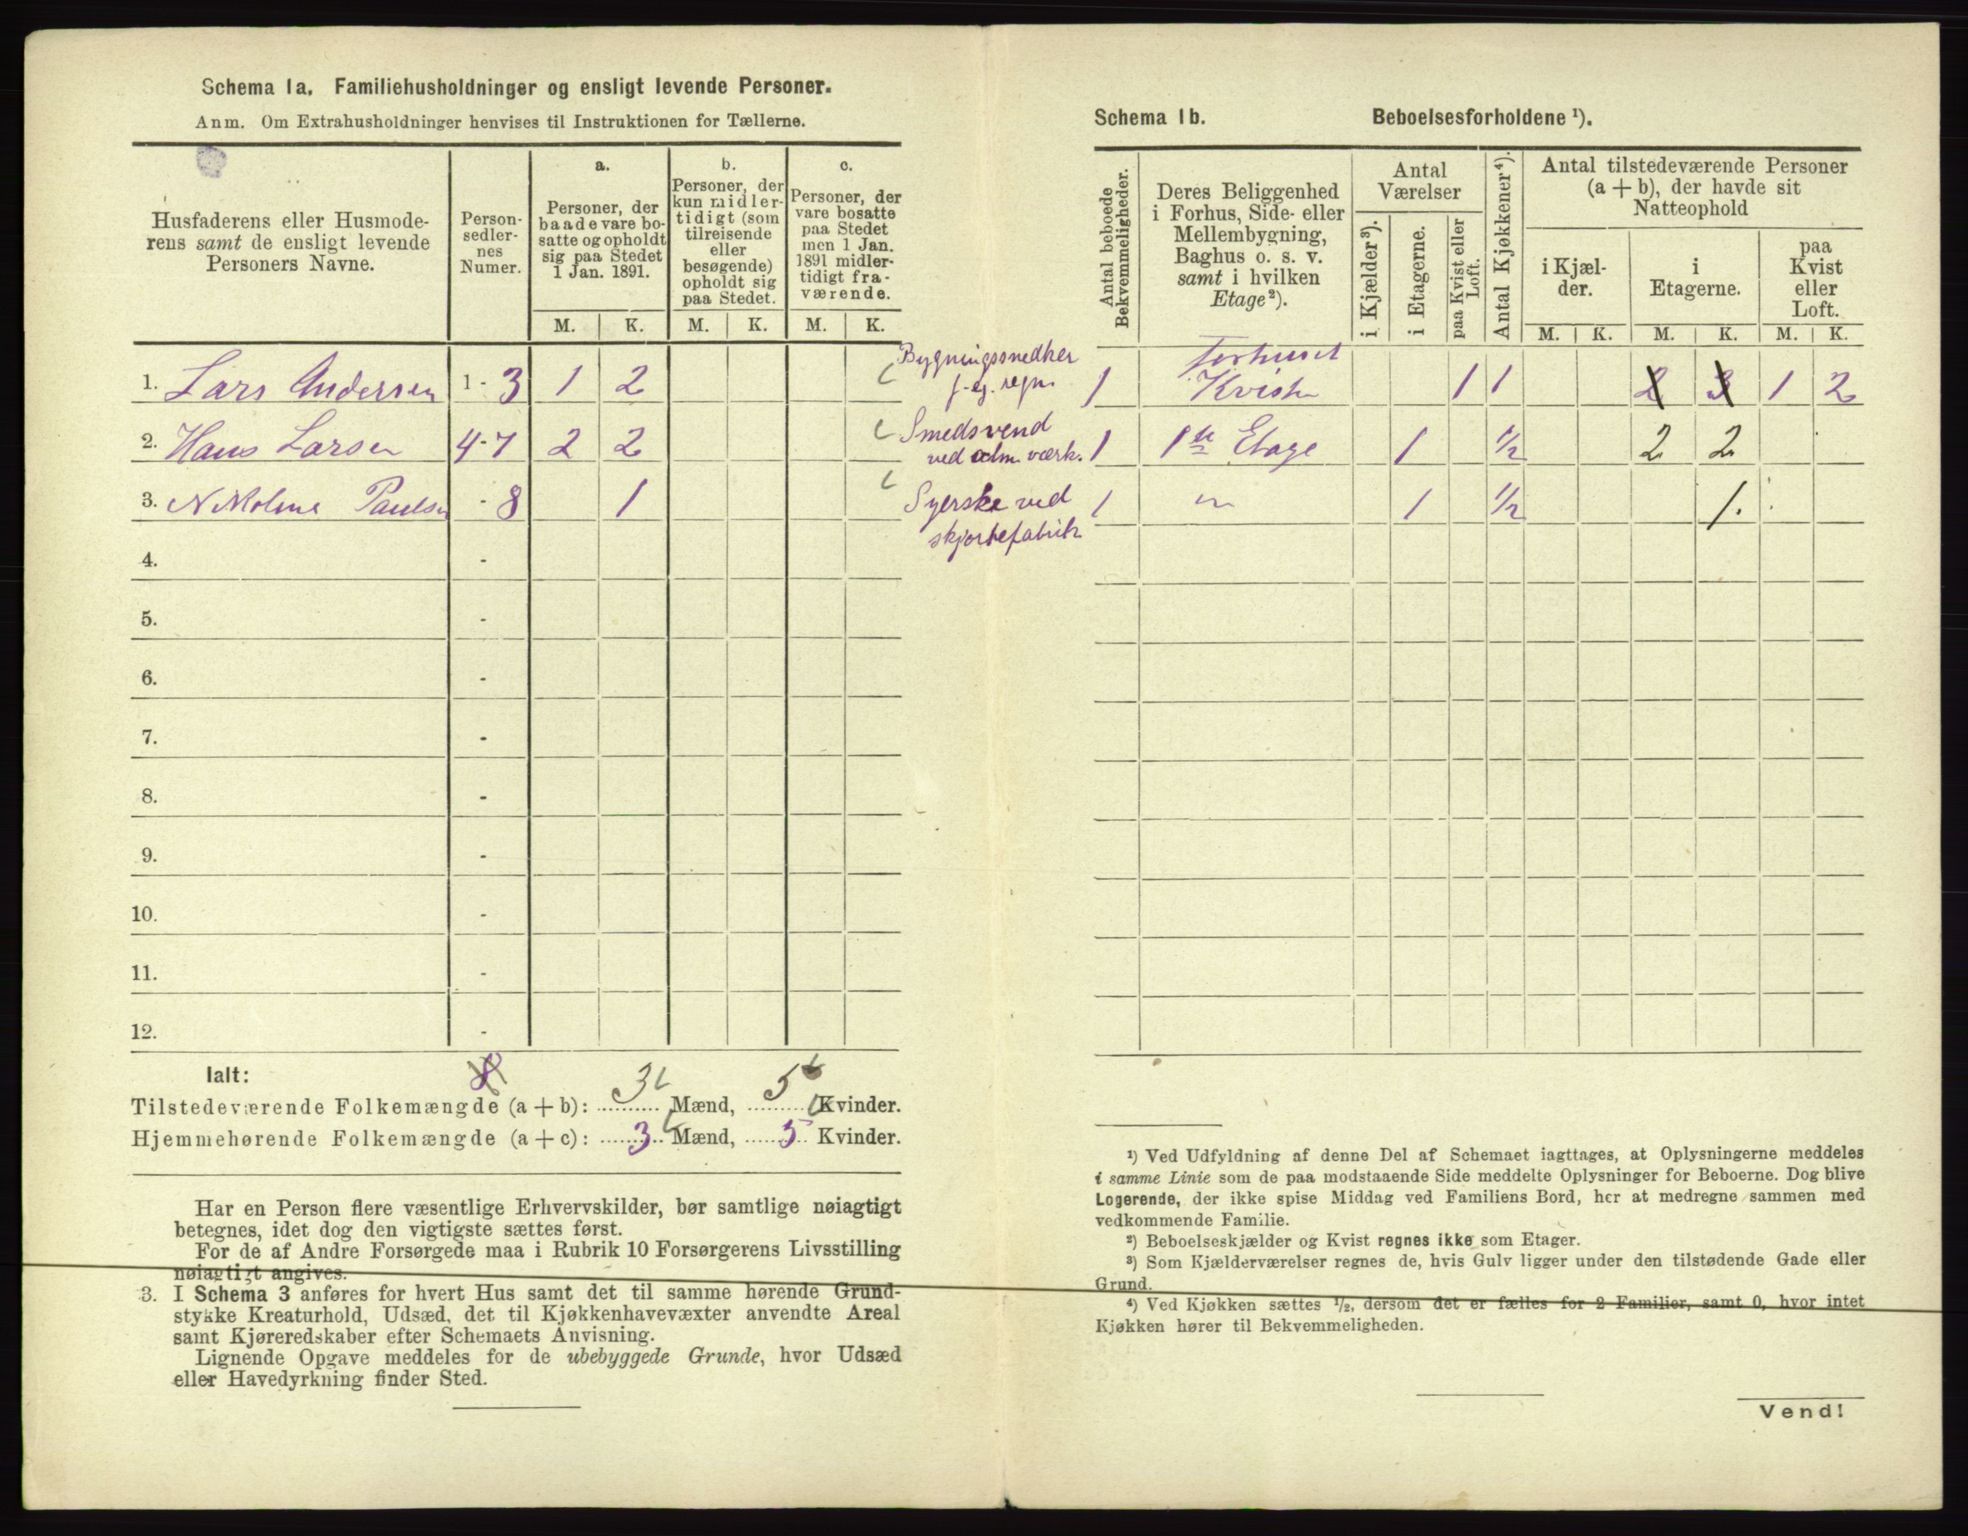 Schema 1a. Familiehusholdninger og ensligt levende Personer.
Anm. Om Extrahusholdninger henvises til Instruktionen for Tællerne.
Husfaderens eller Husmode-
rens samt de ensligt levende
Personers Navne.
Person-
sedler-
nes
Numer.
a.
Personer, der
baade vare bo-
satte og opholdt
sig paa Stedet
1 Jan. 1891.
b.
Personer, der
kun midler-
tidigt (som
tilreisende
eller
besøgende)
opholdt sig
paa Stedet.
c.
Personer, der
vare bosatte
paa Stedet
men 1 Jan.
1891 midler-
tidigt fra-
værende.
M. K. M. K. M. K.
1. Lars Andersen 1 - 3 1 2
2. Hans Larsen 4 - 7 2 2
3. Paulsen - 8 1
4. -
5. -
6. -
7. -
8. -
9. -
10. -
11. -
12. -
Ialt: 8
Tilstedeværende Folkemængde (a + b): 3 Mænd, 5 Kvinder.
Hjemmehørende Folkemængde (a + c): 3 Mænd, 5 Kvinder.
Har en Person flere væsentlige Erhvervskilder, bør samtlige nøiagtigt
betegnes, idet dog den vigtigste sættes først.
For de af Andre Forsørgede maa i Rubrik 10 Forsørgerens Livsstilling
nøiagtigt angives.
3. I Schema 3 anføres for hvert Hus samt det til samme hørende Grund-
stykke Kreaturhold, Udsæd, det til Kjøkkenhavevæxter anvendte Areal
samt Kjøreredskaber efter Schemaets Anvisning.
Lignende Opgave meddeles for de ubebyggede Grunde, hvor Udsæd
eller Havedyrkning finder Sted.
Schema 1b. Beboelsesforholdene ¹).
Antal beboede
Bekvemmeligheder.
Deres Beliggenhed
i Forhus, Side- eller
Mellembygning,
Baghus o. s. v.
samt i hvilken
Etage²).
Antal
Værelser
i Kjælder³).
i Etagerne.
paa Kvist eller
Loft.
Antal Kjøkkener⁴).
Antal tilstedeværende Personer
(a + b), der havde sit
Natteophold
i Kjæl-
der.
i
Etagerne.
paa
Kvist
eller
Loft.
M. K. M. K. M. K.
Bygningssnedker
f. eg. regn.
1 Forhuset
Kvisten 1 1 2 3 1 2
Smedsvend
ved alm. værk. 1 1ste Etage 1 1/2 2 2
Syerske ved
skjortefabrik 1 " 1 1/2 1.
¹) Ved Udfyldning af denne Del af Schemaet iagttages, at Oplysningerne meddeles
i samme Linie som de paa modstaaende Side meddelte Oplysninger for Beboerne. Dog blive
Logerende, der ikke spise Middag ved Familiens Bord, her at medregne sammen med
vedkommende Familie.
²) Beboelseskjælder og Kvist regnes ikke som Etager.
³) Som Kjælderværelser regnes de, hvis Gulv ligger under den tilstødende Gade eller
Grund.
⁴) Ved Kjøkken sættes ½, dersom det er fælles for 2 Familier, samt 0, hvor intet
Kjøkken hører til Bekvemmeligheden.
Vend!